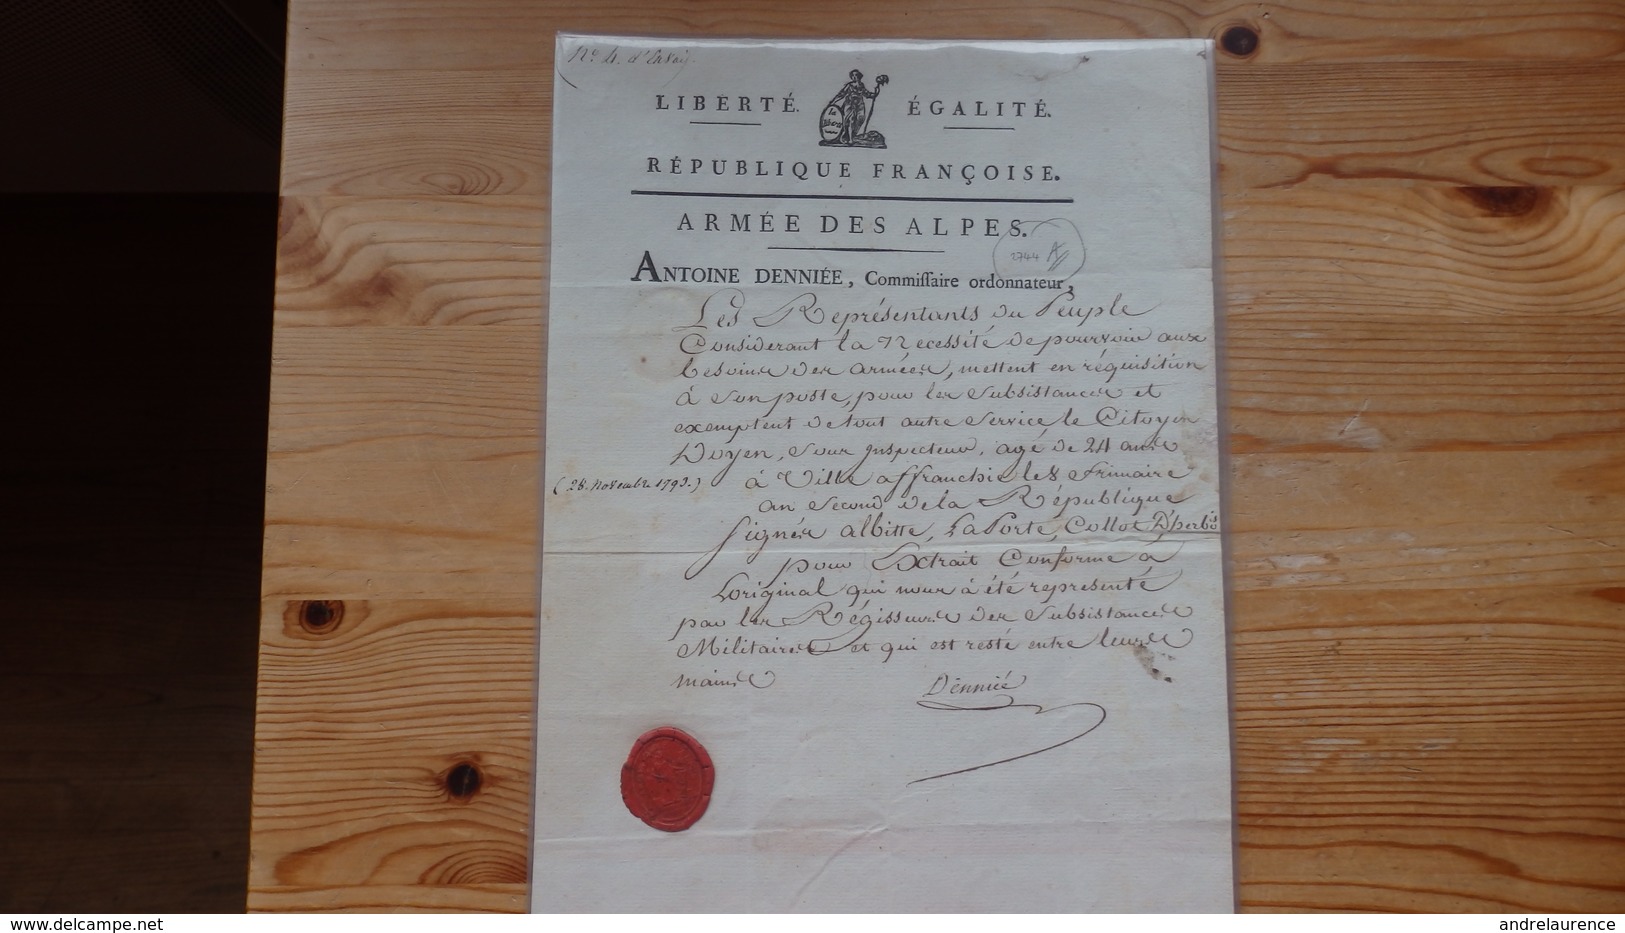 N.° 4. d'Envoi.
LIBERTÉ. ÉGALITÉ.
RÉPUBLIQUE FRANÇOISE.
ARMÉE DES ALPES.
2744 A
ANTOINE DENNIÉE, Commiſſaire ordonnateur,
Les Représentants du Peuple
Considerant la Necessité de pourvoir aux
besoins des armées, mettent en réquisition
à son poste, pour les Subsistances et
exemptent de tout autre Service, le Citoyen
Doyen, sous Inspecteur, agé de 24 ans
(28. Novembre 1793.) à Ville affranchie le 8 Frimaire
an Second de la République
Signés albitte, La Porte, Collot D'herbois
pour Extrait Conforme a
Loriginal qui nous à été representé
par les Régisseurs des Subsistances
Militaires et qui est resté entre leurs
mains
Denniée
delcampe.net
andrelaurence